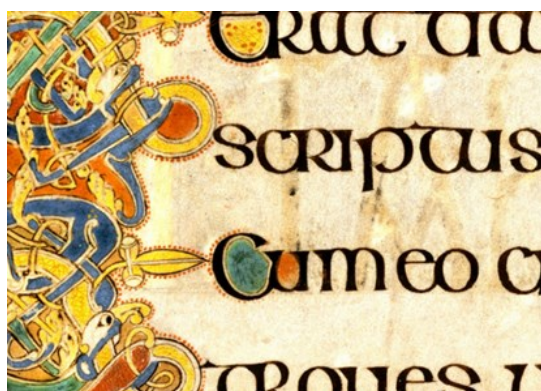 Erat
scriptus
Cum eo
trones